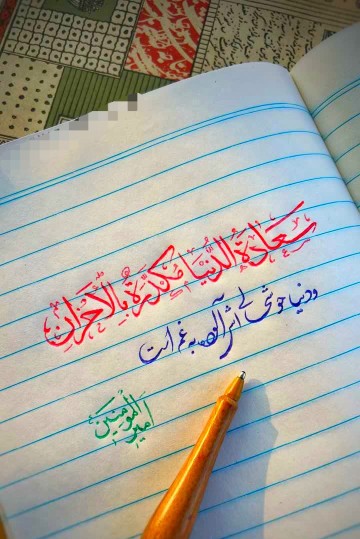 سَعَادَةُ الدُّنْيَا مُكَدَّرَةٌ بِالْأَحْزَانِ
دنیا خوشی آلوده به غم است
امیر المؤمنین